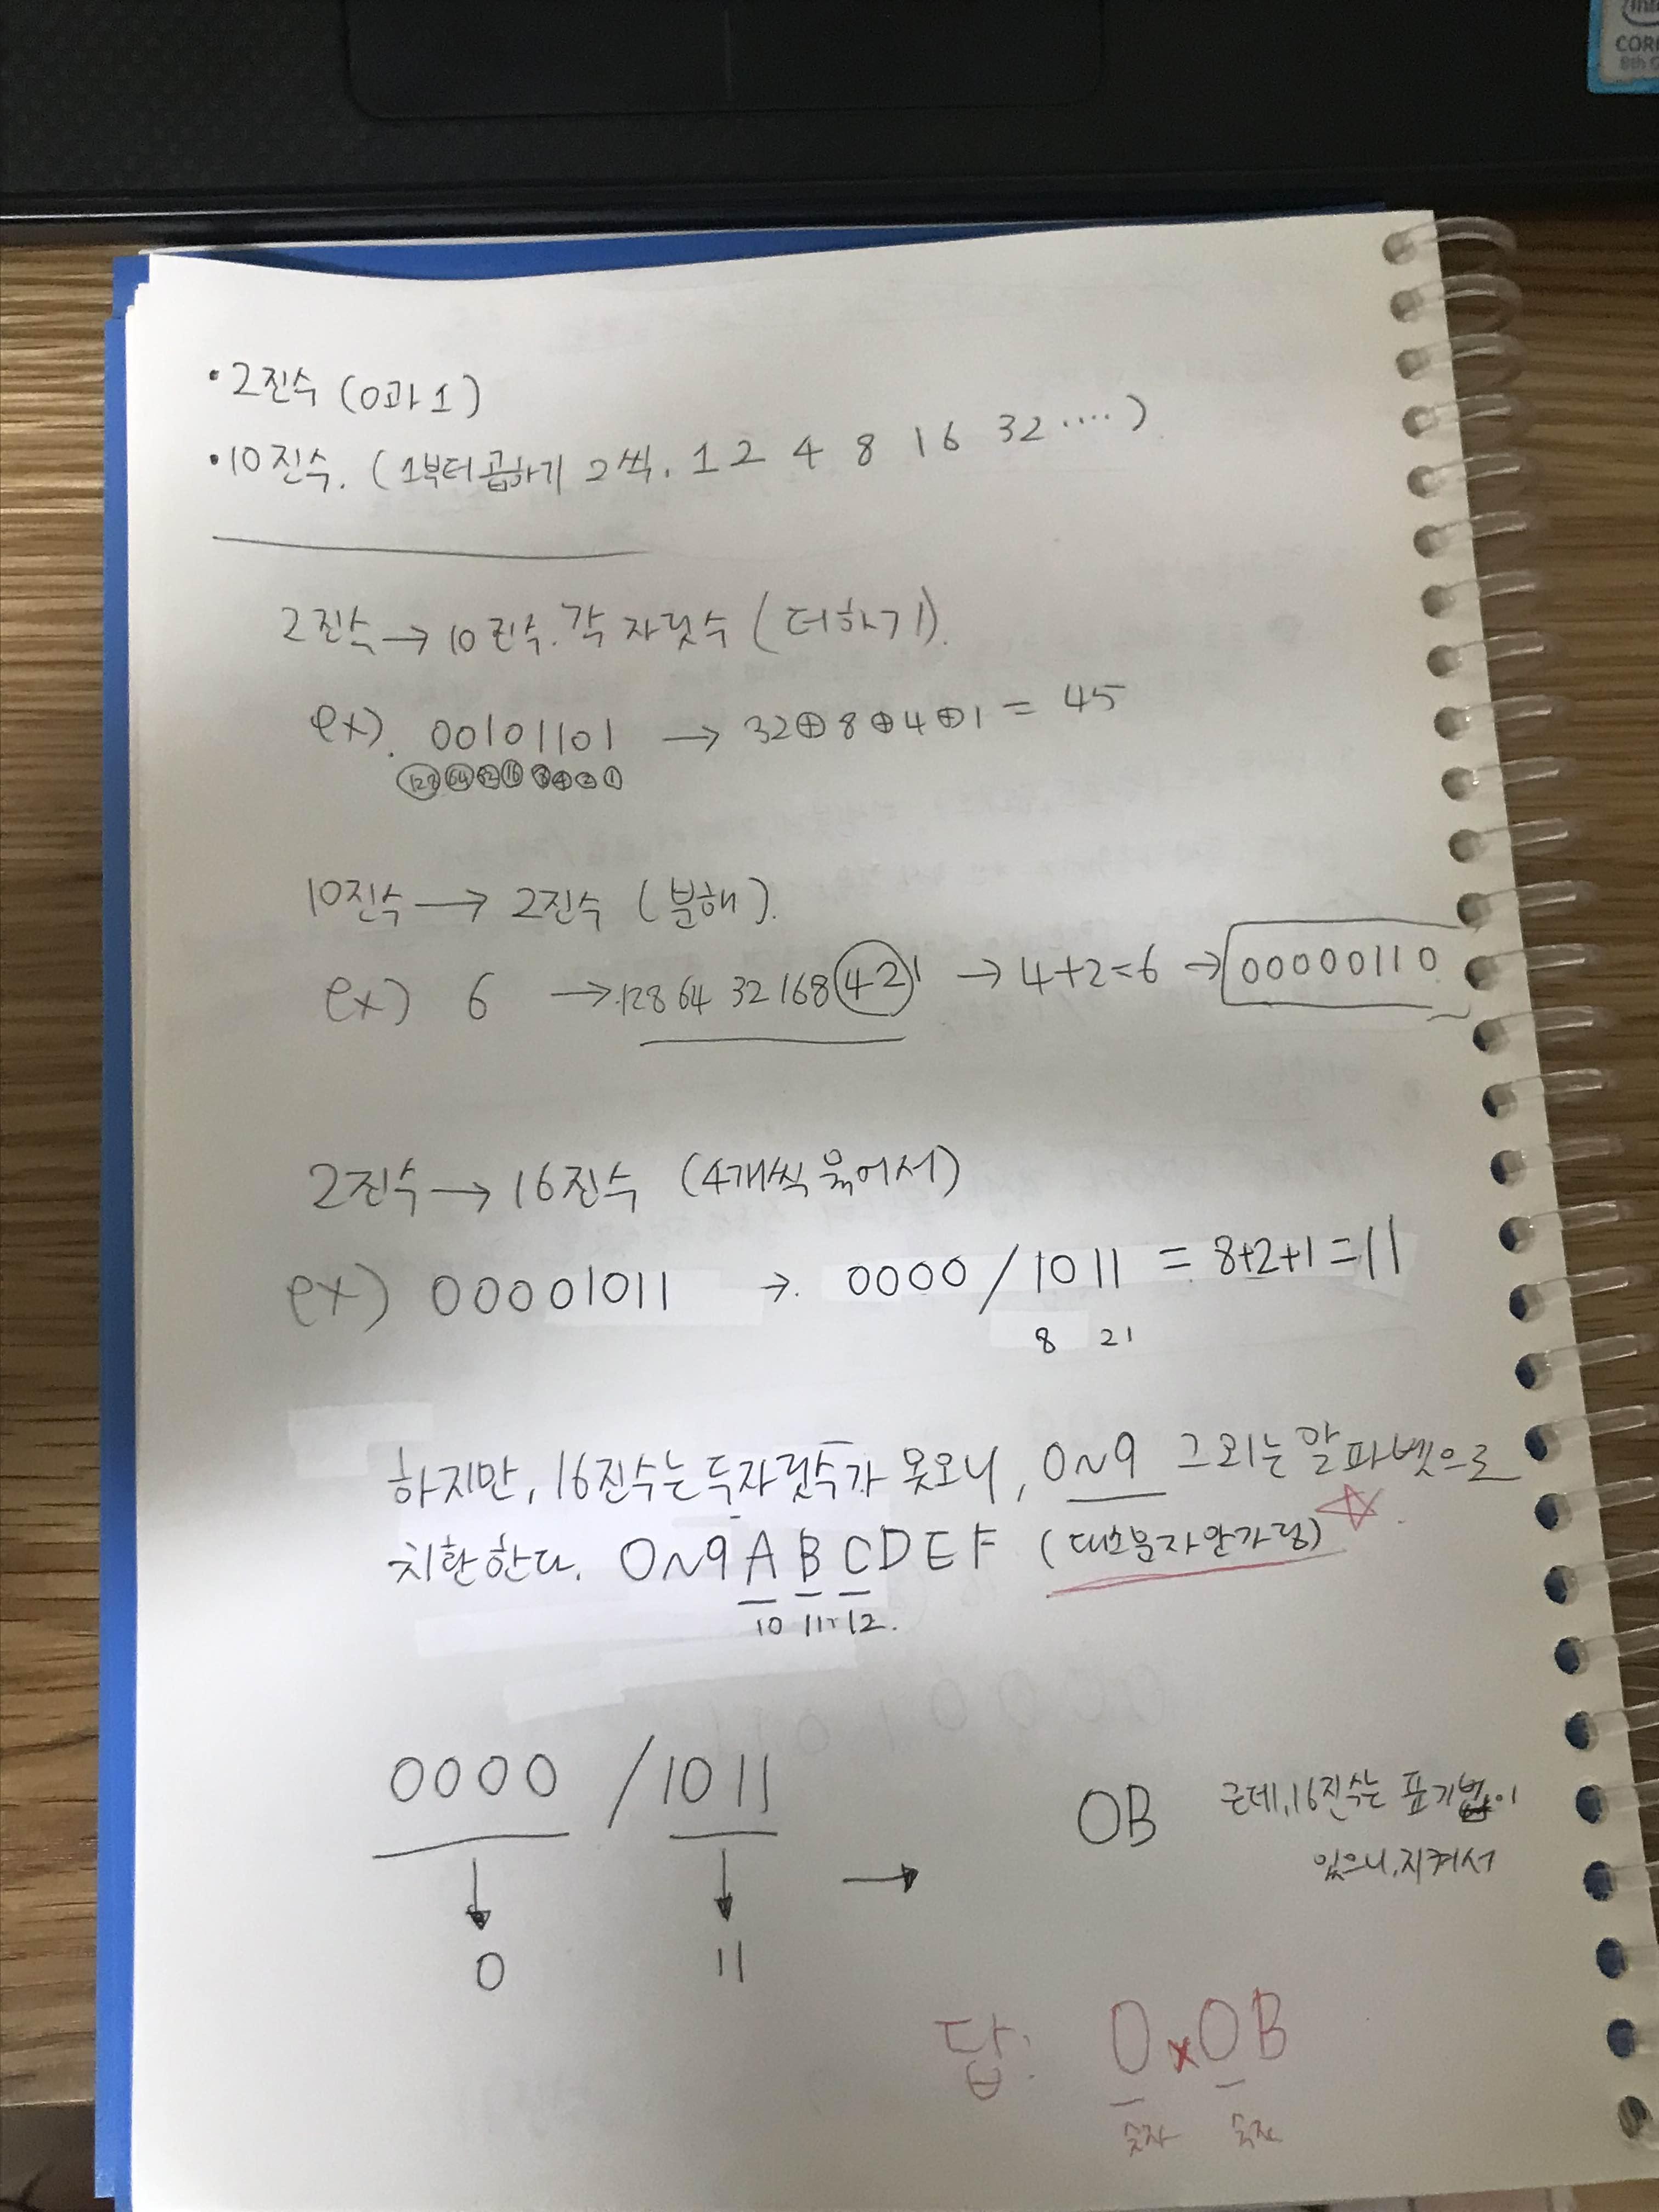 CORE
8th
• 2진수 (0과 1)
• 10진수. (1부터 곱하기 2씩. 1 2 4 8 16 32 ····)
2진수 → 10진수. 각 자릿수 (더하기).
ex). 00101101 → 32⊕8⊕4⊕1 = 45
128 64 32 16 8 4 2 1
10진수 → 2진수 (분해).
ex) 6 → 128 64 32 16 8 4 2 1 → 4+2=6 → 00000110
2진수 → 16진수 (4개씩 묶어서)
ex) 00001011 → 0000 / 1011 = 8+2+1=11
8 2 1
하지만, 16진수는 두자릿수가 못오니, 0~9 그외는 알파벳으로
치환한다. 0~9 A B C D E F (대소문자 안가림) ☆
10 11 12.
0000 / 1011 → 0B 근데, 16진수는 표기법이
있으니, 지켜서
0 11
답: 0x0B
숫자 숫자